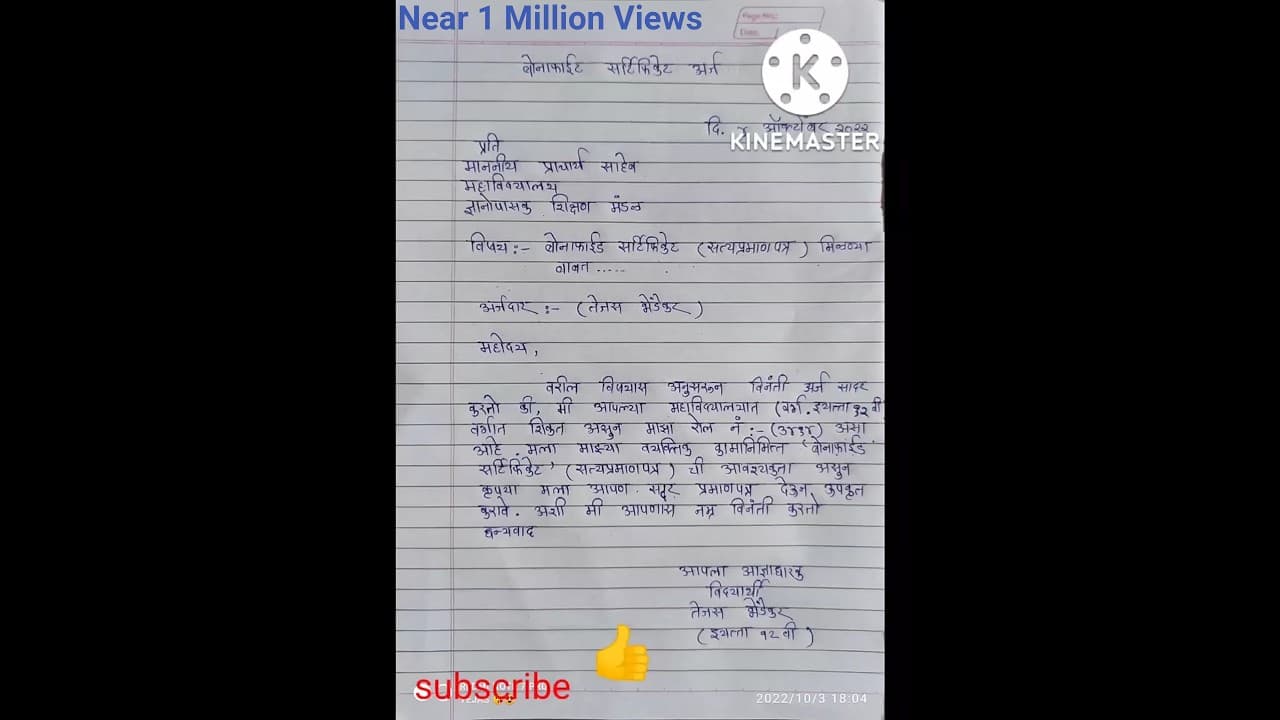 Near 1 Million Views
Page No.:
Date
बोनाफाईट सर्टिफिकेट अर्ज
दि. ऑक्टोबर २०२२
KINEMASTER
प्रति
माननीय प्राचार्य साहेब
महाविद्यालय
ज्ञानोपासक शिक्षण मंडळ
विषय :- बोनाफाईड सर्टिफिकेट (सत्यप्रमाणपत्र) मिळण्या
बाबत .....
अर्जदार :- (तेजस भेंडेकर)
महोदय,
वरील विषयास अनुसरून विनंती अर्ज सादर
करतो की, मी आपल्या महाविद्यालयात (वर्ग. इयत्ता १२ वी
वर्गात शिकत असुन माझा रोल नं :- (३४१४) असा
आहे. मला माझ्या वयक्तिक कामानिमित्त 'बोनाफाईड
सर्टिफिकेट' (सत्यप्रमाणपत्र) ची आवश्यकता असुन
कृपया मला आपण. सदर प्रमाणपत्र देऊन उपकृत
करावे. अशी मी आपणास नम्र विनंती करतो
धन्यवाद
आपला आज्ञाधारक
विद्यार्थी
तेजस भेंडेकर
(इयत्ता १२ वी)
subscribe
2022/10/3 18:04